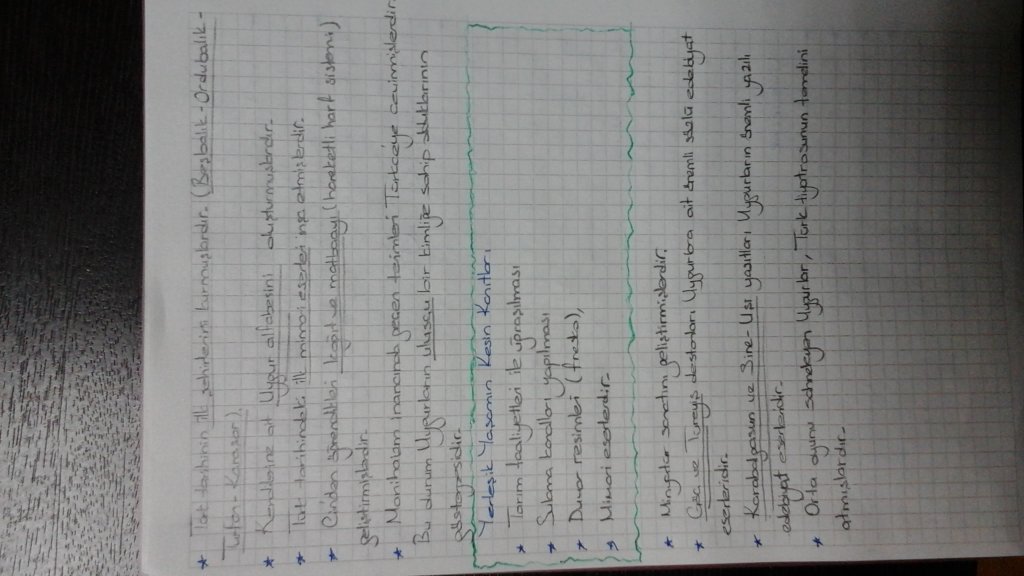 * Türk tarihinin ilk şehirlerini kurmuşlardır. (Beşbalık - Ordubalık -
Turfan - Karaşar).
* Kendilerine ait Uygur alfabesini oluşturmuşlardır.
* Türk tarihindeki ilk mimari eserleri inşa etmişlerdir.
* Çinden öğrendikleri kağıt ve matbaayı (hareketli harf sistemi)
geliştirmişlerdir.
* Manihaizm inancında geçen terimleri Türkçeye çevirmişlerdir.
Bu durum Uygurların ulusçu bir kimliğe sahip olduklarının
göstergesidir.
Yerleşik Yaşamın Kesin Kanıtları
* Tarım faaliyetleri ile uğraşılması
* Sulama kanalları yapılması
* Duvar resimleri (fresko),
* Mimari eserlerdir.
* Minyatür sanatını geliştirmişlerdir.
* Göç ve Türeyiş destanları Uygurlara ait önemli sözlü edebiyat
eserleridir.
* Karabalgasun ve Şine-Usu yazıtları Uygurların önemli yazılı
edebiyat eserleridir.
* Orta oyunu sahneleyen Uygurlar, Türk tiyatrosunun temelini
atmışlardır.